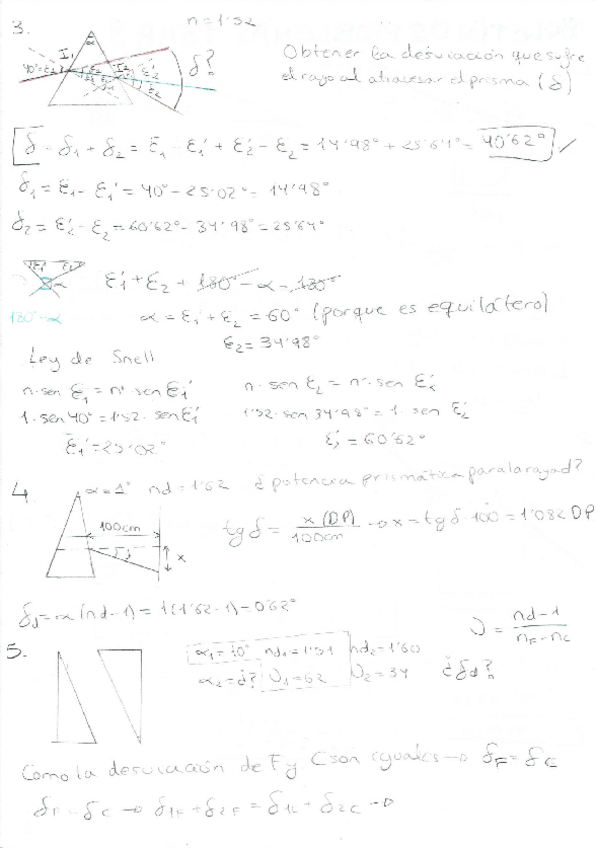 3.
n=1'52
I₁ α I₂
40°=ε₁
δ?
Obtener la desviación que sufre
el rayo al atravesar el prisma (δ)
δ = δ₁ + δ₂ = ε₁ - ε₁' + ε₂' - ε₂ = 14'98° + 25'64° = 40'62° ✓
δ₁ = ε₁ - ε₁' = 40° - 25'02° = 14'98°
δ₂ = ε₂' - ε₂ = 60'62° - 34'98° = 25'64°
ε₁' ε₂
α
180°-α
ε₁' + ε₂ + 180° - α = 180°
α = ε₁' + ε₂ = 60° (porque es equilátero)
ε₂ = 34'98°
Ley de Snell
n·sen ε₁ = n'·sen ε₁'
n·sen ε₂ = n'·sen ε₂'
1·sen 40° = 1'52·sen ε₁'
1'52·sen 34'98° = 1·sen ε₂'
ε₁' = 25'02°
ε₂' = 60'62°
4.
α=1° nd=1'62 ¿potencia prismática para la raya d?
100cm
δ x
tg δ = x (DP) / 100cm → x = tg δ · 100 = 1'082 DP
δd = α (nd-1) = 1(1'62-1) = 0'62°
υ = nd-1 / nF-nC
5.
α₁=10° nd₁=1'51 nd₂=1'60
α₂=¿? υ₁=62 υ₂=34 ¿δd?
Como la desviación de F y C son iguales → δF = δC
δF = δC → δ₁F + δ₂F = δ₁C + δ₂C →